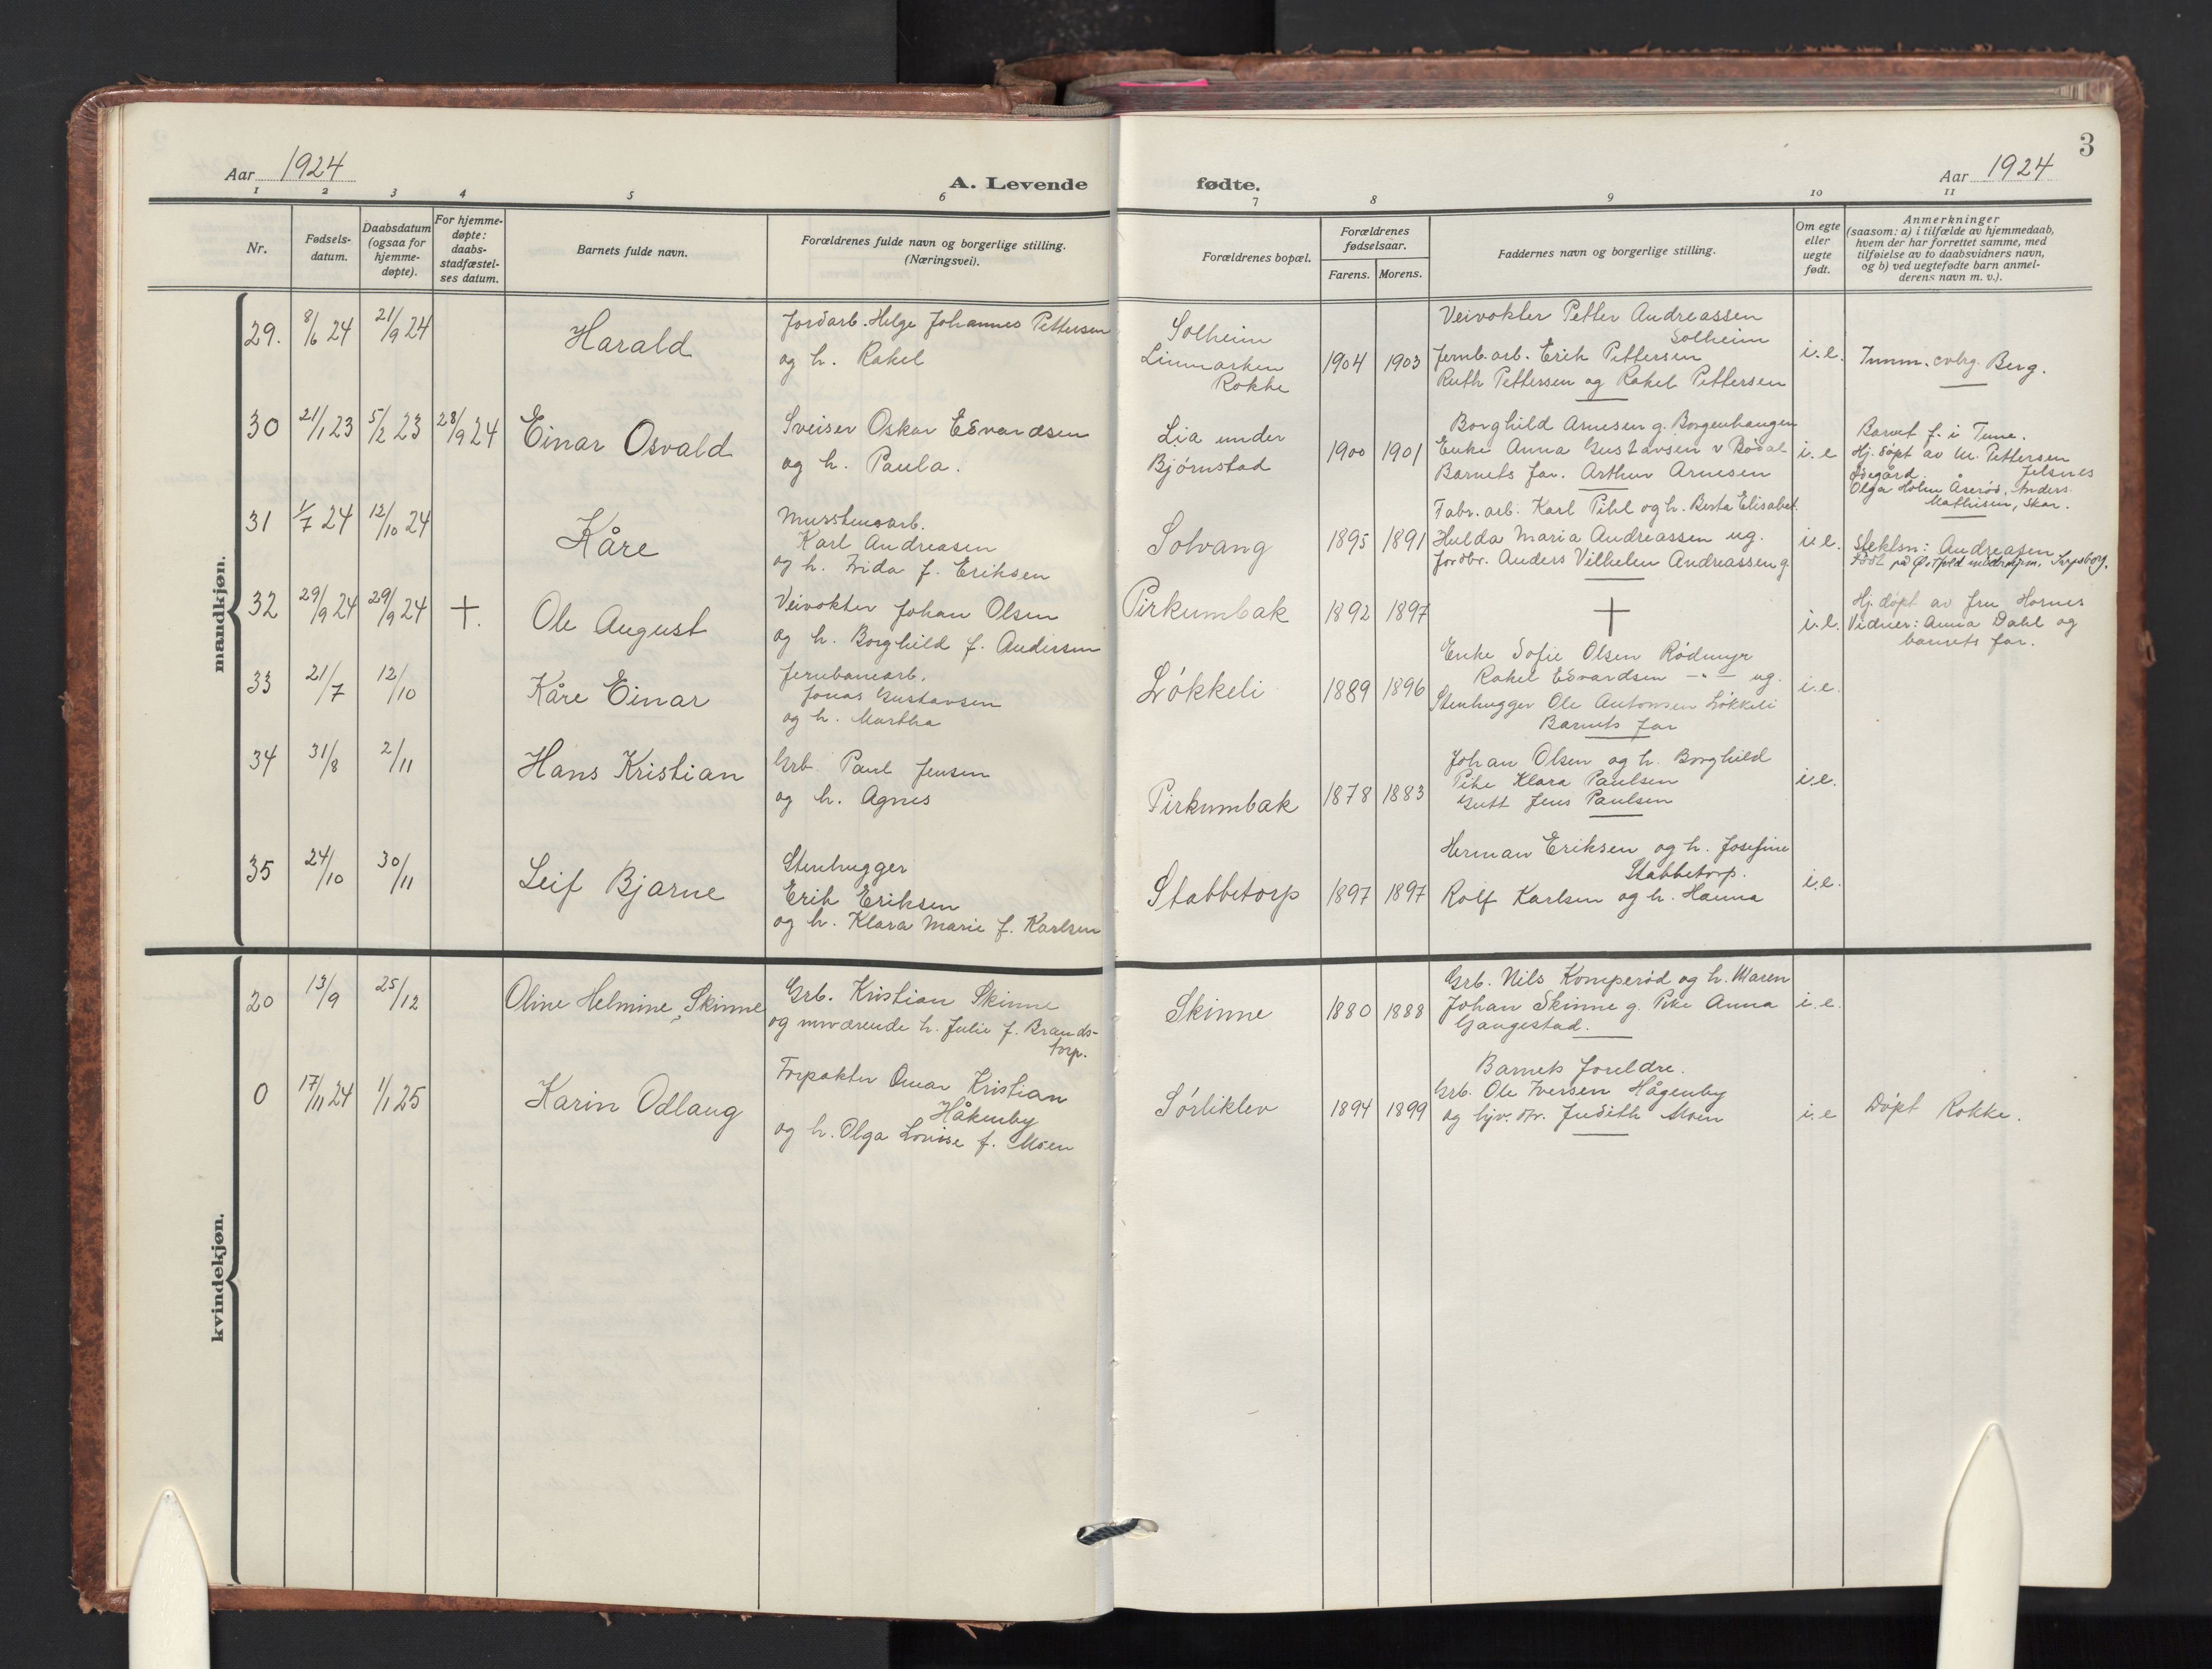 3
Aar 1924
A. Levende fødte.
Aar 1924
1 2 3 4 5 6 7 8 9 10 11
Nr.
Fødsels-
datum.
Daabsdatum
(ogsaa for
hjemme-
døpte).
For hjemme-
døpte:
daabs-
stadfæstel-
ses datum.
Barnets fulde navn.
Forældrenes fulde navn og borgerlige stilling.
(Næringsvei).
Forældrenes bopæl.
Forældrenes
fødselsaar.
Farens. Morens.
Faddernes navn og borgerlige stilling.
Om egte
eller
uegte
født.
Anmerkninger
(saasom: a) i tilfælde av hjemmedaab,
hvem der har forrettet samme, med
tilføielse av to daabsvidners navn,
og b) ved uegtefødte barn anmel-
derens navn m. v.).
mandkjøn.
29. 8/6 24 21/9 24
Harald
Jordarb. Helge Johannes Pettersen
og h. Rakel
Solheim
Linmarken
Rokke
1904 1903
Veivokter Petter Andreassen
Solheim
Jernb.arb. Erik Pettersen
Ruth Pettersen og Rakel Pettersen
i.e.
Berg.
30 21/1 23 5/2 23 28/9 24
Einar Osvald
Sveiser Oskar Edvardsen
og h. Paula.
Lia under
Bjørnstad
1900 1901
Borghild Arnesen g. Borgenhaugen
Enke Anna Gustavsen v Bødal
Barnets far. Arthur Arnesen
i.e
Barnet f. i Tune.
Hj. døpt av M. Pettersen
Ødegård. Jelsnes
Olga Holm Åserød, Anders
Mathisen, Skar.
31 1/7 24 12/10 24
Kåre
Murstensarb.
Karl Andreasen
og h. Frida f. Eriksen
Solvang
1895 1891
Fabr. arb. Karl Pihl og h. Berta Elisabet.
Hulda Maria Andreassen ug.
Jordbr. Anders Vilhelm Andreassen g
i.e.
Slektsn: Andreasen
Født på Østfold mødrehjem, Sarpsborg.
32 29/9 24 29/9 24 †.
Ole August
Veivokter Johan Olsen
og h. Borghild f. Andersen
Pirkumbak
1892 1897
†
i.e.
Hj. døpt av fru Hornes
Vidner: Anna Dahl og
barnets far.
33 21/7 12/10
Kåre Einar
Jernbanearb.
Jonas Gustavsen
og h. Martha
Løkkeli
1889 1896
Enke Sofie Olsen Rødmyr
Rakel Edvardsen —"— ug.
Stenhugger Ole Antonsen Løkkeli
Barnets far
i.e.
34 31/8 2/11
Hans Kristian
Grb. Paul Jensen
og h. Agnes
Pirkumbak
1878 1883
Johan Olsen og h. Borghild
Pike Klara Paulsen
Gutt Jens Paulsen
i.e.
35 24/10 30/11
Leif Bjarne
Stenhugger
Erik Eriksen
og h. Klara Marie f. Karlsen
Stabbetorp
1897 1897
Herman Eriksen og h. Josefine
Stabbetorp.
Rolf Karlsen og h. Hanna
i.e.
kvindekjøn.
20 13/9 25/12
Oline Helmine, Skinne
Grb. Kristian Skinne
og nuværende h. Julie f. Brands-
torp.
Skinne
1880 1888
Grb. Nils Komperød og h. Maren
Johan Skinne g. Pike Anna
Gangestad.
i.e.
0 17/11 24 1/1 25
Karin Odlaug
Forpakter Omar Kristian
Håkenby
og h. Olga Lovise f. Moen
Sørliklev
1894 1899
Barnets foreldre.
Grb. Ole Iversen Hågenby
og Judith Moen
i.e
Døpt Rokke.